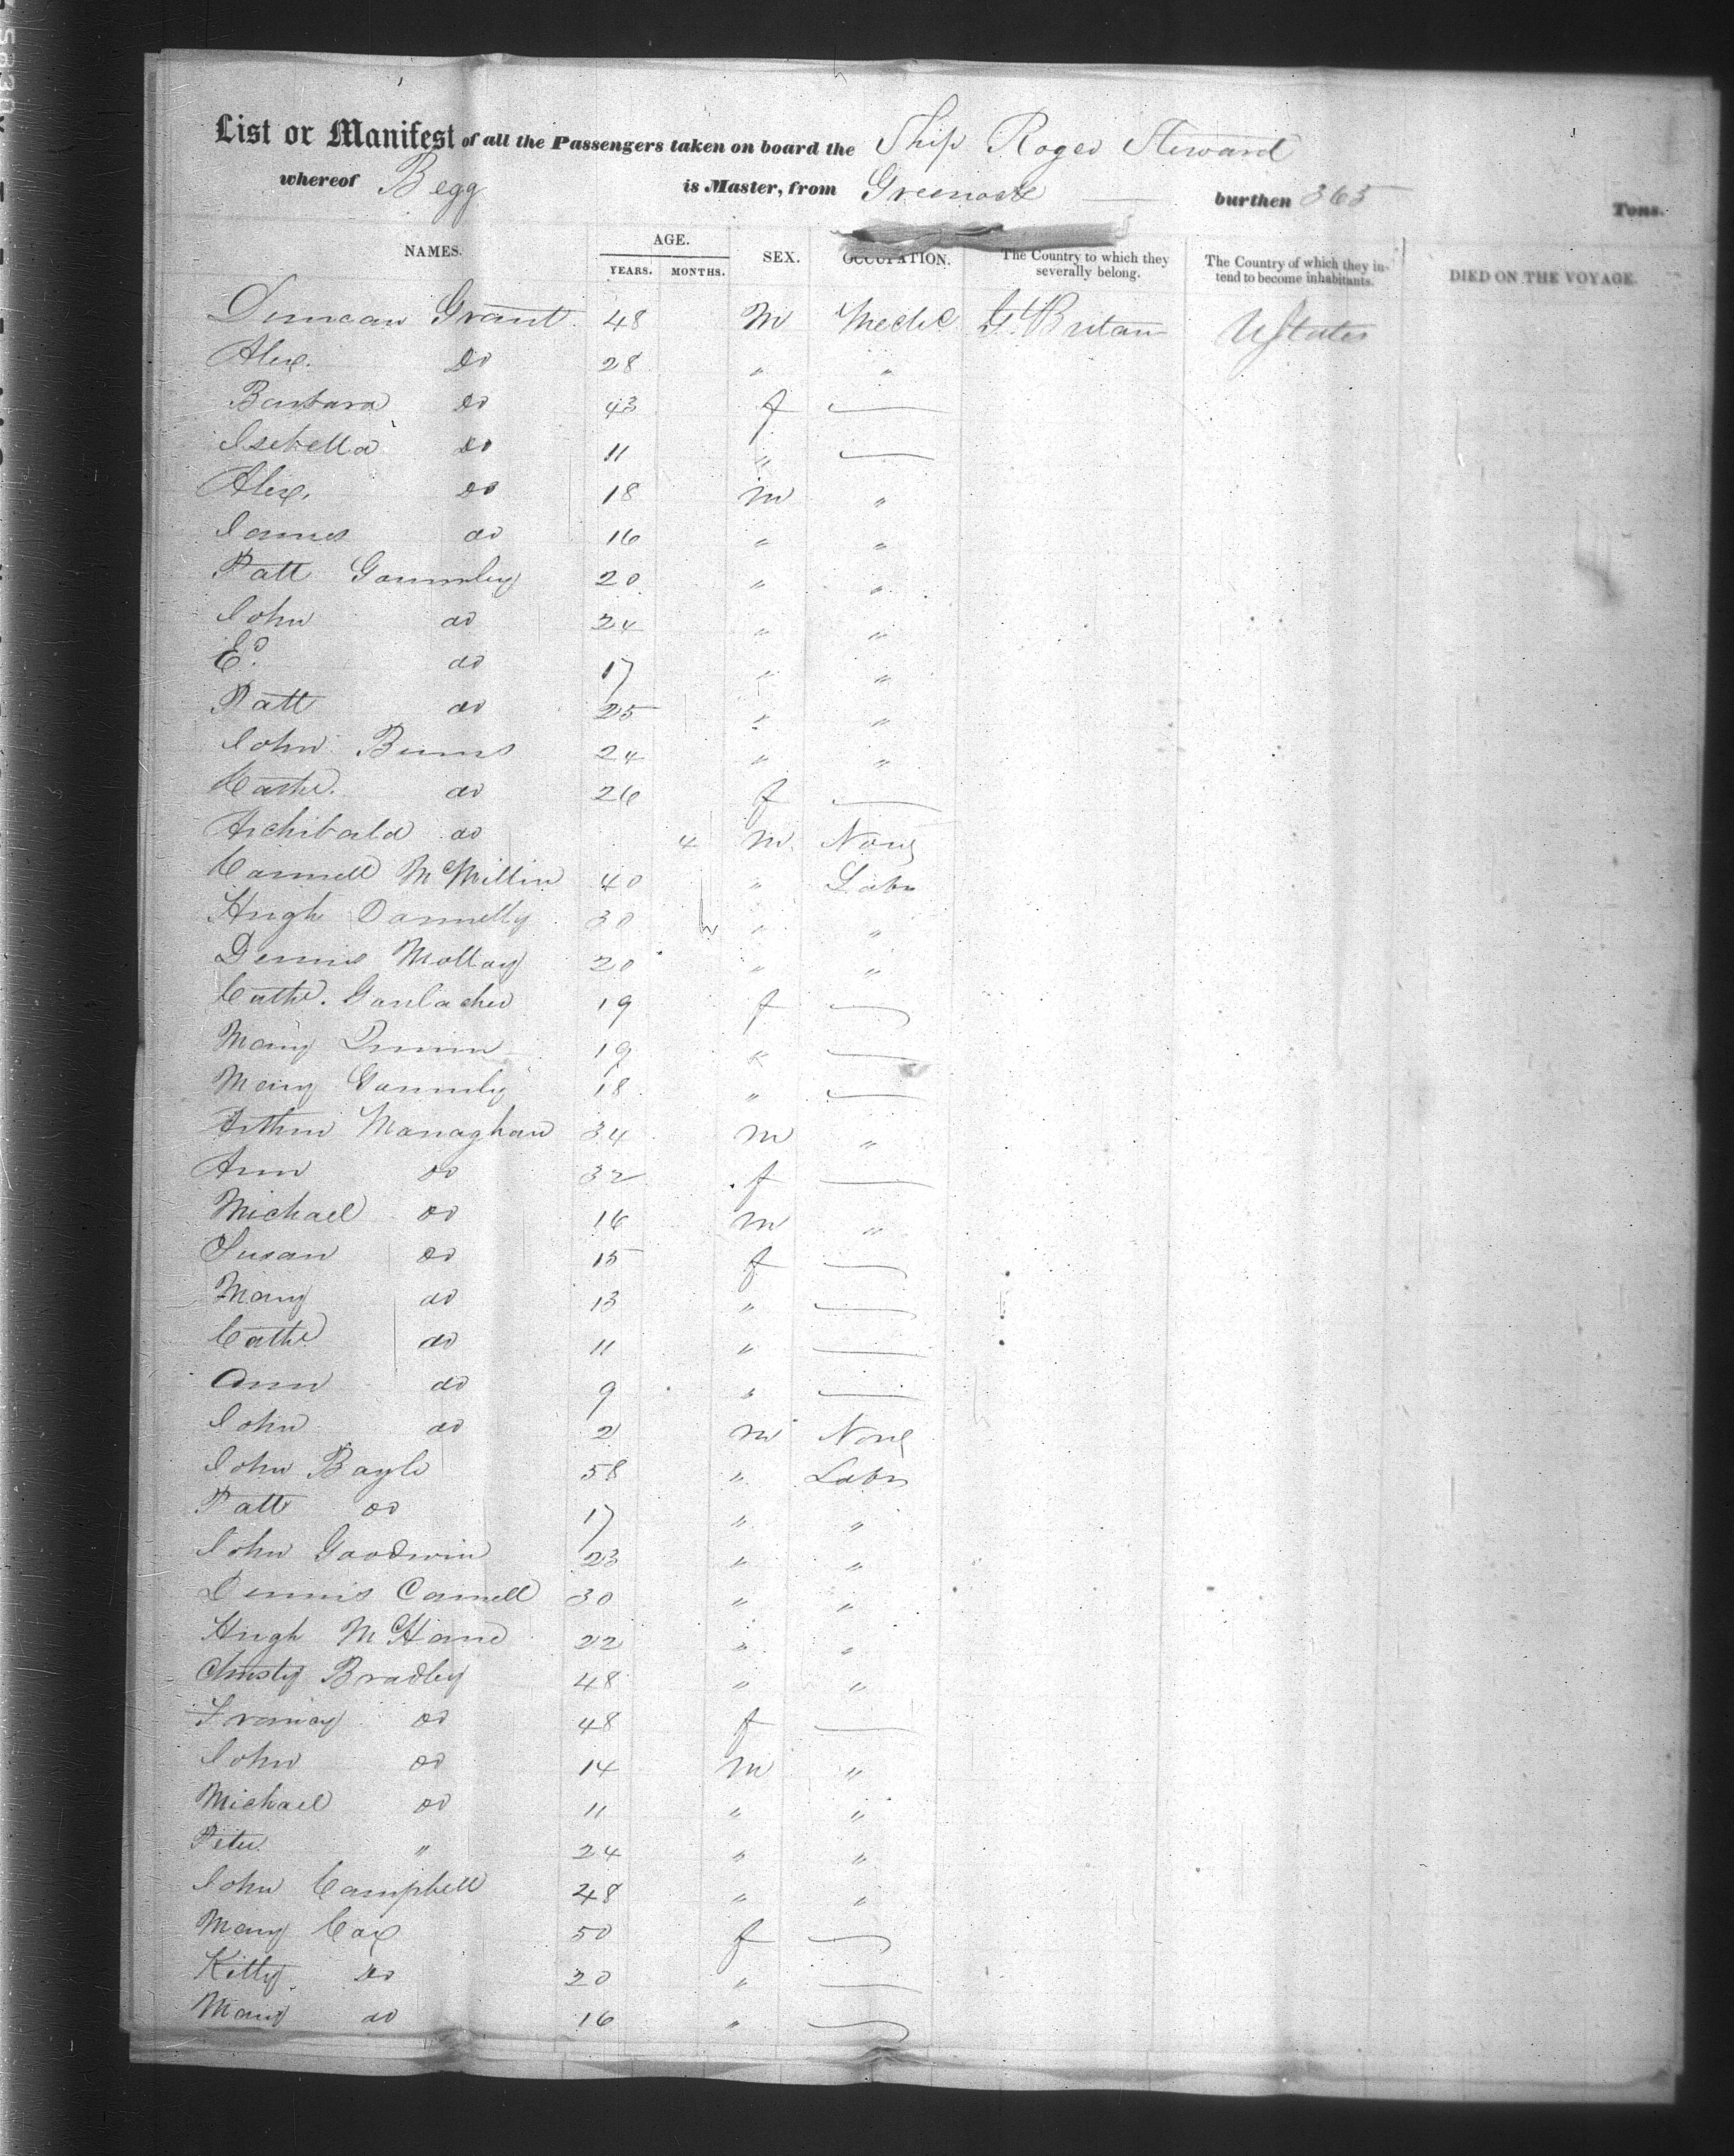 List or Manifest of all the Passengers taken on board the Ship Roger Steward
whereof Begg is Master, from Greenock burthen 363 Tons.
NAMES. AGE. YEARS. MONTHS. SEX. OCCUPATION. The Country to which they severally belong. The Country of which they intend to become inhabitants. DIED ON THE VOYAGE.
Duncan Grant 48 M Mechc Gt Britan UStates
Alex. Do 28 " "
Barbara Do 43 f
Isebella do 11 "
Alex. do 18 m "
James do 16 " "
Patt Gormley 20 " "
John do 24 " "
Ed. do 17 " "
Patt do 25 " "
John Burns 24 " "
Cathe. do 26 f
Archibald do 4 m None
Connell McMillin 40 " Labr
Hugh Donnelly 30 " "
Dennis Molloy 20 " "
Cathe. 19 f
Mary 19 "
Mary Gormly 18 "
Arthur Monaghan 34 m "
Ann do 32 f
Michael do 16 m "
Susan do 15 f
Mary do 13 "
Cathe do 11 "
Ann do 9 "
John do 2 m None
John Boyle 58 " Labr
Patt do 17 " "
John Goodwin 23 " "
Dennis Connell 30 " "
Hugh McHane 22 " "
Christy Bradley 48 " "
do 48 f
John do 14 m "
Michael do 11 " "
Peter " 24 " "
John Campbell 48 " "
Mary Coy 50 f
Kitty Do 20 "
Mary do 16 "